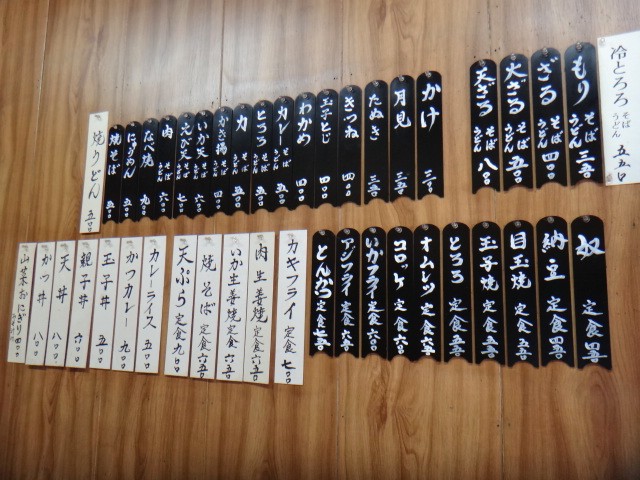 冷とろろ そば うどん 五五〇
もり そば うどん 三五〇
ざる そば うどん 四〇〇
大ざる そば うどん 五〇〇
天ざる そば うどん 八〇〇
かけ 三〇〇
月見 三五〇
たぬき 三五〇
きつね 四〇〇
玉子とじ 四〇〇
わかめ 四〇〇
カレー そば うどん 五〇〇
とろろ そば うどん 五〇〇
力 そば うどん 五〇〇
かき揚 そば うどん 五〇〇
いか天 そば うどん 六〇〇
えび天 そば うどん 七〇〇
肉 そば うどん 六〇〇
なべ焼 九〇〇
にゅうめん 五〇〇
焼そば 五〇〇
焼うどん 五〇〇
奴 定食 四五〇
納豆 定食 四五〇
目玉焼 定食 五五〇
玉子焼 定食 五五〇
とろろ 定食 五五〇
オムレツ 定食 六五〇
コロッケ 定食 六〇〇
いかフライ 定食 六〇〇
アジフライ 定食 六五〇
とんかつ 定食 六五〇
カキフライ 定食 七〇〇
肉生姜焼 定食 六五〇
いか生姜焼 定食 六五〇
焼そば 定食 六五〇
天ぷら 定食 九〇〇
カレーライス 五〇〇
かつカレー 九〇〇
玉子丼 五〇〇
親子丼 六〇〇
天丼 八〇〇
かつ丼 八〇〇
山菜おにぎり 四〇〇